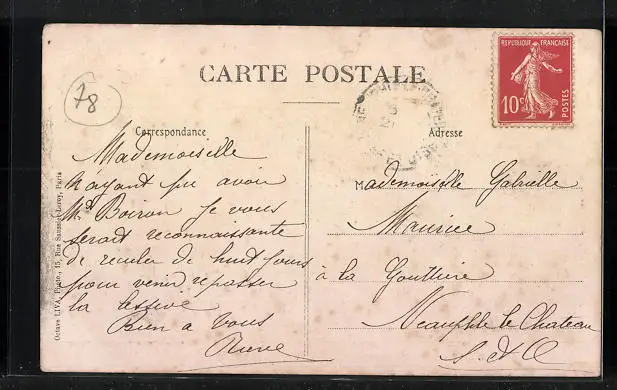 CARTE POSTALE
78
REPUBLIQUE FRANÇAISE
10c
POSTES
Correspondance
Mademoiselle
n'ayant pu avoir
Boiron je vous
serait reconnaissante
de reculer de huit jours
pour venir repasser
la lessive
Rien a vous
Adresse
Mademoiselle Gabrielle
Maurice
à la Gouttière
Neauphle le Chateau
S. & O
Octave LIVA, Photo., 15, Rue Paris